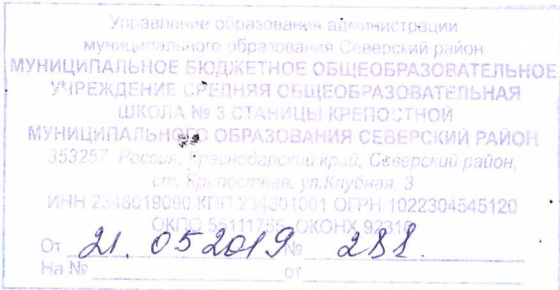 Управление образования администрации
муниципального образования Северский район
МУНИЦИПАЛЬНОЕ БЮДЖЕТНОЕ ОБЩЕОБРАЗОВАТЕЛЬНОЕ
УЧРЕЖДЕНИЕ СРЕДНЯЯ ОБЩЕОБРАЗОВАТЕЛЬНАЯ
ШКОЛА № 3 СТАНИЦЫ КРЕПОСТНОЙ
МУНИЦИПАЛЬНОГО ОБРАЗОВАНИЯ СЕВЕРСКИЙ РАЙОН
353257 Россия, Краснодарский край, Северский район,
ст. Крепостная, ул.Клубная, 3
ИНН 2348019090 КПП 234801001 ОГРН 1022304545120
ОКПО 55111755 ОКОНХ 92310
От 21. 05 2019 № 288.
На № от